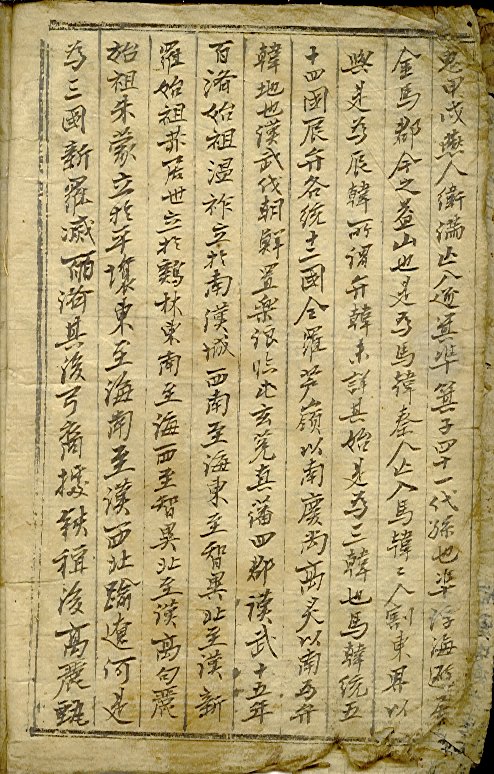 甲戌燕人衛滿亡入逐箕準箕子四十一代孫也準浮海
金馬郡今之益山也是為馬韓秦人亡入馬韓〻人割東界以
與是為辰韓所謂弁韓未詳其始是為三韓也馬韓統五
十四國辰弁各統十二國今羅芦嶺以南慶尚高灵以南為弁
韓地也漢武伐朝鮮置樂浪臨屯玄菟真藩四郡漢武十五年
百濟始祖温祚立於南漢城西南至海東至智異北至漢新
羅始祖赫居世立於鷄林東南至海西至智異北至漢高句麗
始祖朱蒙立於平壤東至海南至漢西北踰遼河是
為三國新羅滅麗濟其後弓裔據鉄稱後高麗甄